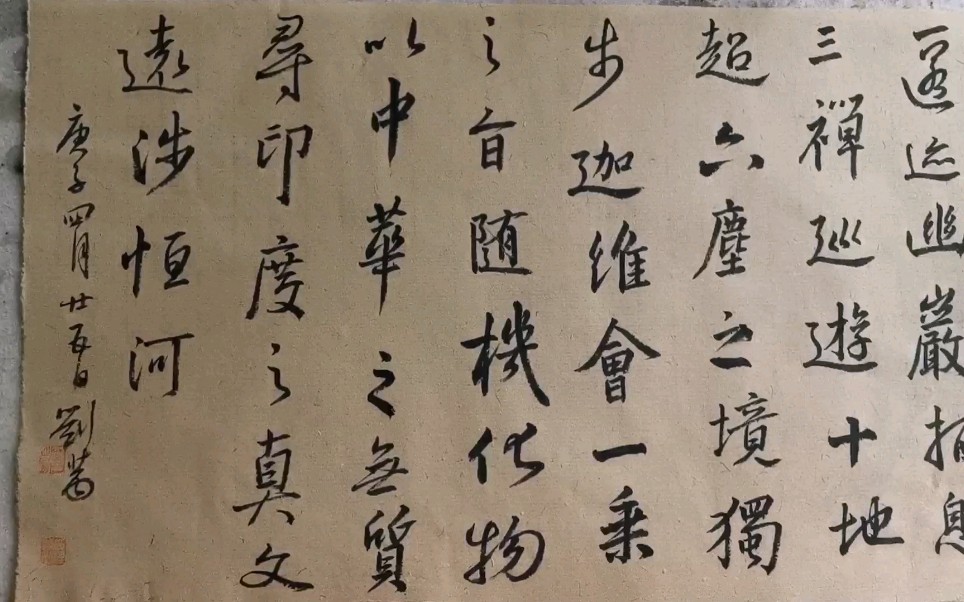 匿迹幽巖栖息
三禪巡遊十地
超六塵之境獨
步迦維會一乘
之旨随機化物
以中華之無質
尋印度之真文
遠涉恒河
庚子四月廿五日劉